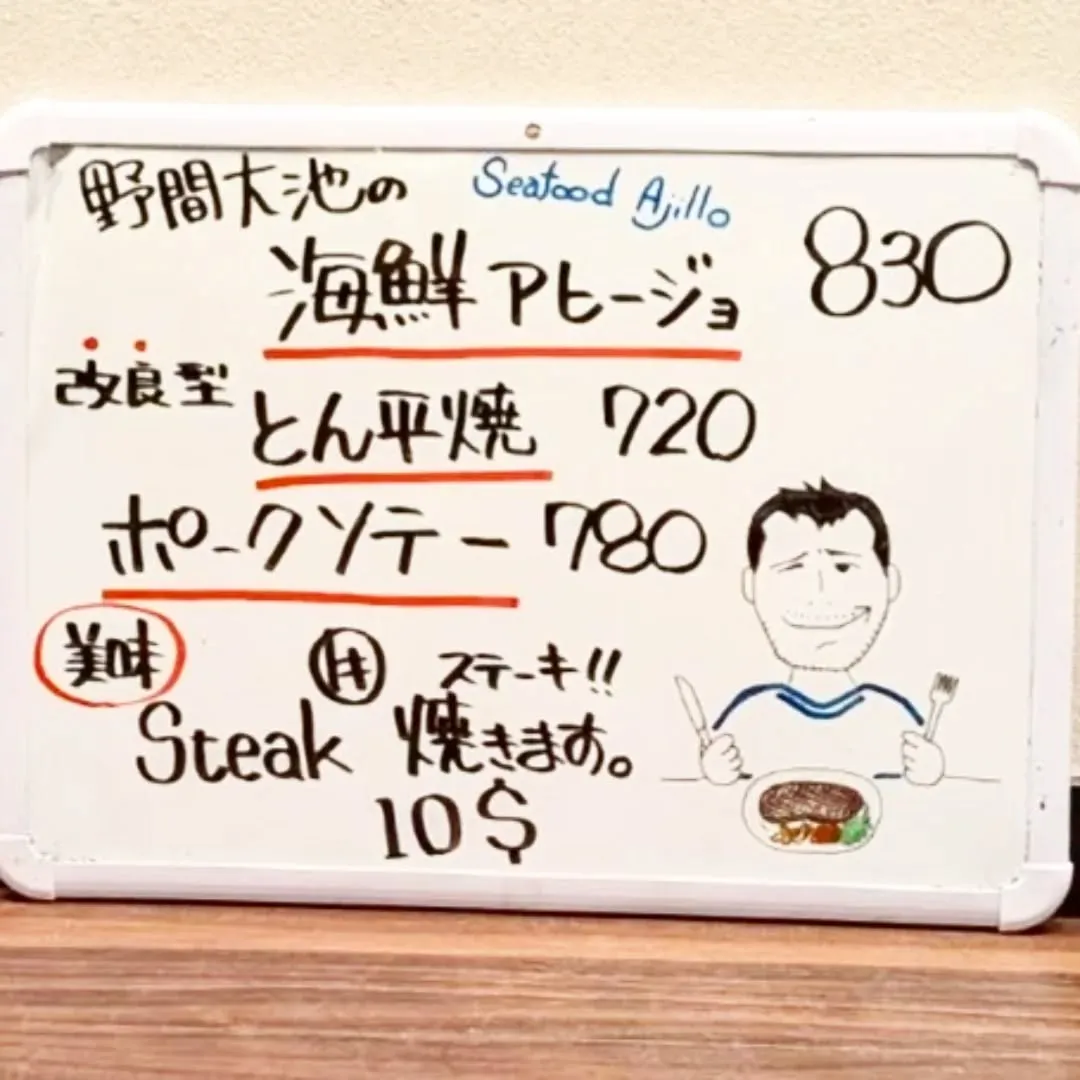 野間大池の
Seafood Ajillo
海鮮アヒージョ 830
改良型
とん平焼 720
ポークソテー 780
美味
ステーキ!!
Steak 焼きます。
10$